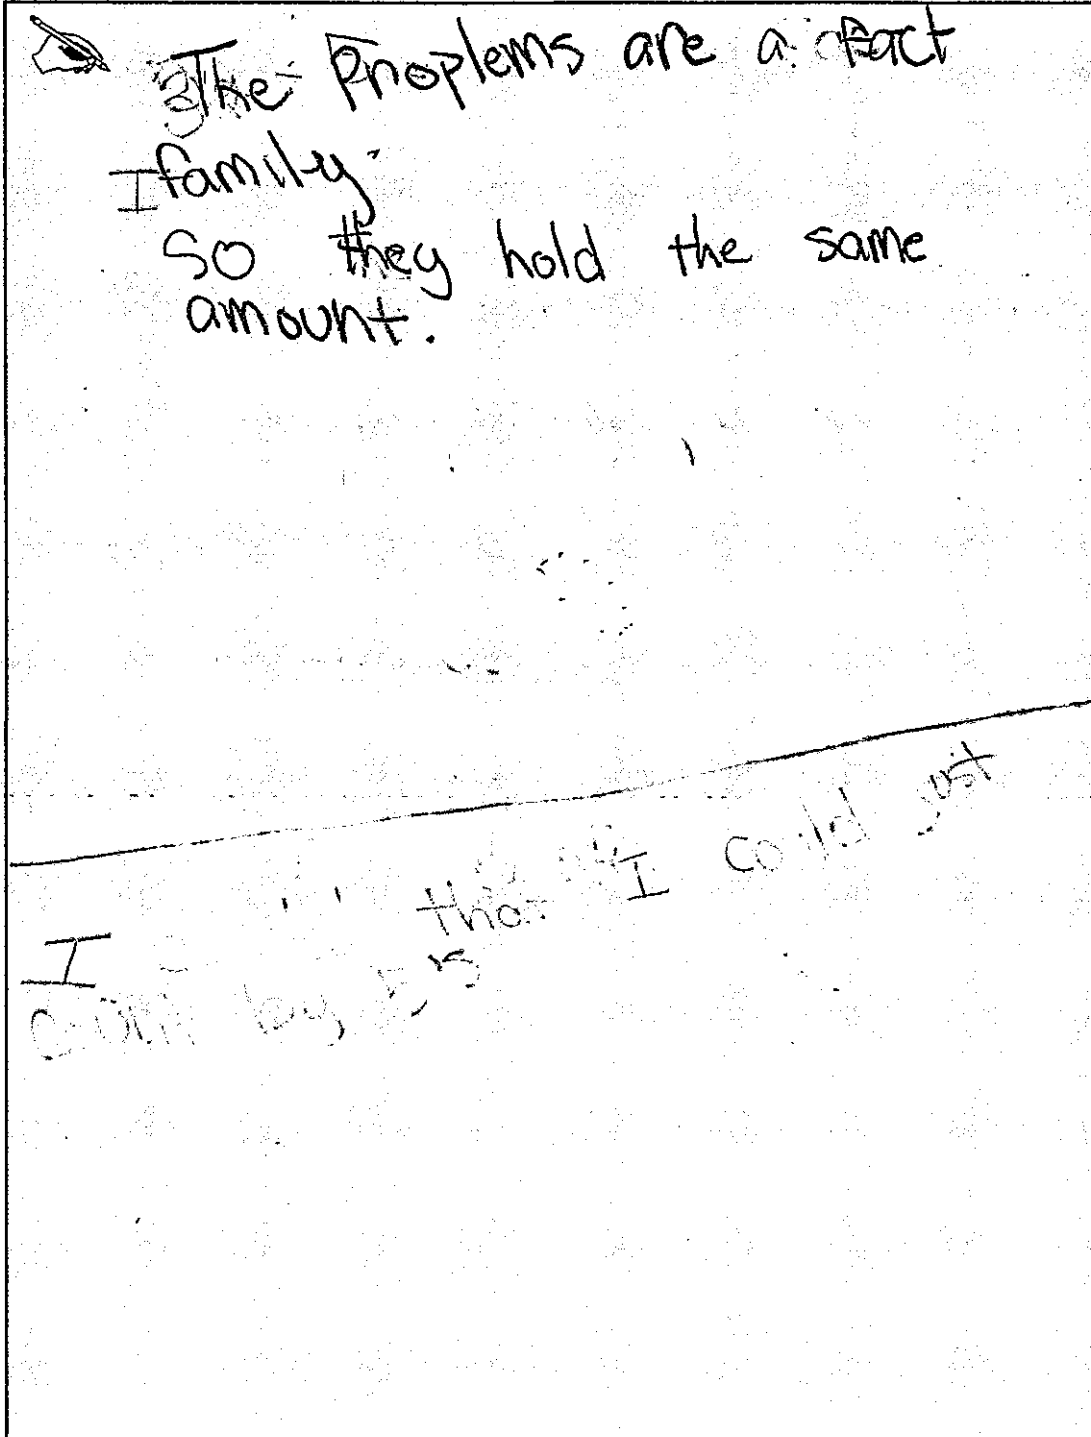 The Proplems are a fact
family.
So they hold the same
amount.
I that I could just
count by 5's